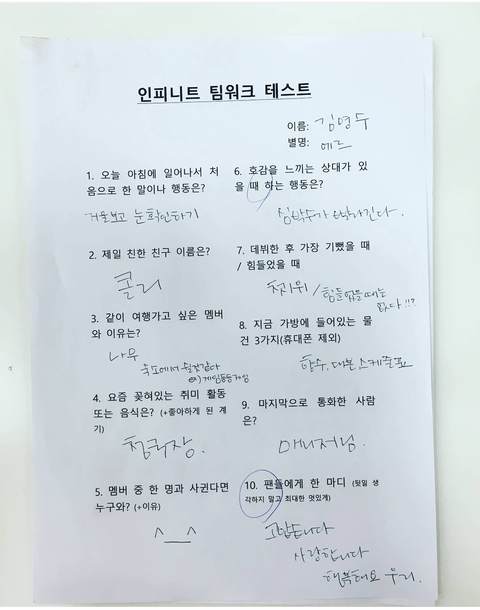 인피니트 팀워크 테스트
이름: 김명수
별명: 에르
1. 오늘 아침에 일어나서 처
음으로 한 말이나 행동은?
거울보고 눈확인하기
2. 제일 친한 친구 이름은?
콜리
3. 같이 여행가고 싶은 멤버
와 이유는?
나무
숙소에서 쉴것같다
ex) 게임등등
4. 요즘 꽂혀있는 취미 활동
또는 음식은? (+좋아하게 된 계
기)
청국장.
5. 멤버 중 한 명과 사귄다면
누구와? (+이유)
^__^
6. 호감을 느끼는 상대가 있
을 때 하는 행동은?
심박수가 빨라진다.
7. 데뷔한 후 가장 기뻤을 때
/ 힘들었을 때
첫1위 / 힘들었을때는
없다!!?
8. 지금 가방에 들어있는 물
건 3가지(휴대폰 제외)
향수. 대본 스케줄표
9. 마지막으로 통화한 사람
은?
매니저님.
10. 팬들에게 한 마디 (뒷일 생
각하지 말고 최대한 멋있게)
고맙습니다
사랑합니다
행복해요 우리.